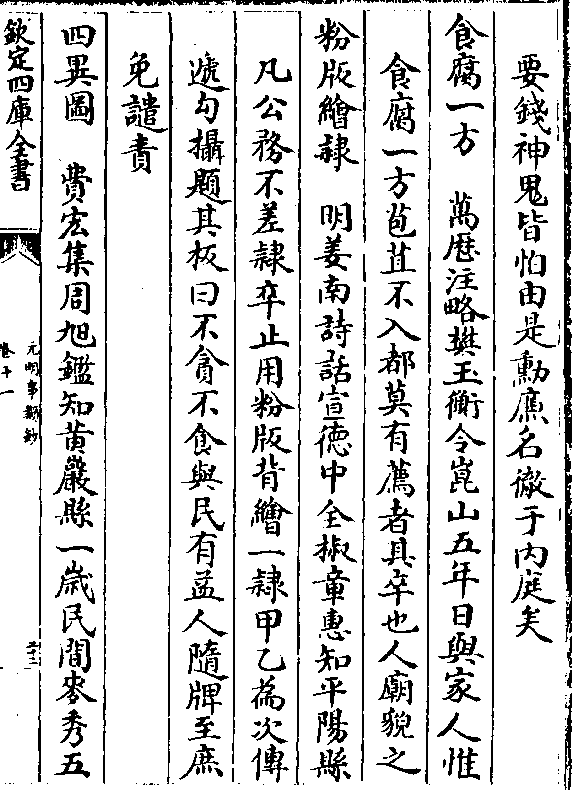 要錢神鬼皆怕由是勳廉名徹于内庭矣
食腐一方　萬厯注略樊玉衡令崑山五年日與家人惟
食腐一方苞苴不入都莫有薦者其卒也人廟貌之
粉版繪隷　明姜南詩話宣德中全椒章惠知平陽縣
凡公務不差隷卒止用粉版背繪一隷甲乙為次傳
遞勾攝題其板曰不貪不食與民有益人隨牌至庶
免譴責
四異圖　費宏集周旭鑑知黄巖縣一歲民間麥秀五
欽定四庫全書
元明事類鈔
卷十一